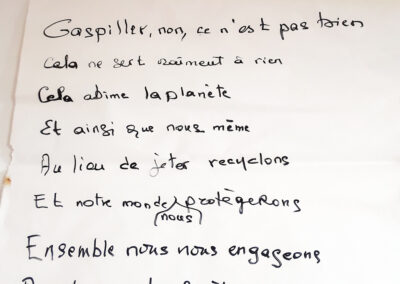 Gaspiller, non, ce n'est pas bien
Cela ne sert vraiment à rien
Cela abime la planète
Et ainsi que nous même
Au lieu de jeter recyclons
Et notre monde nous protègerons
Ensemble nous nous engageons